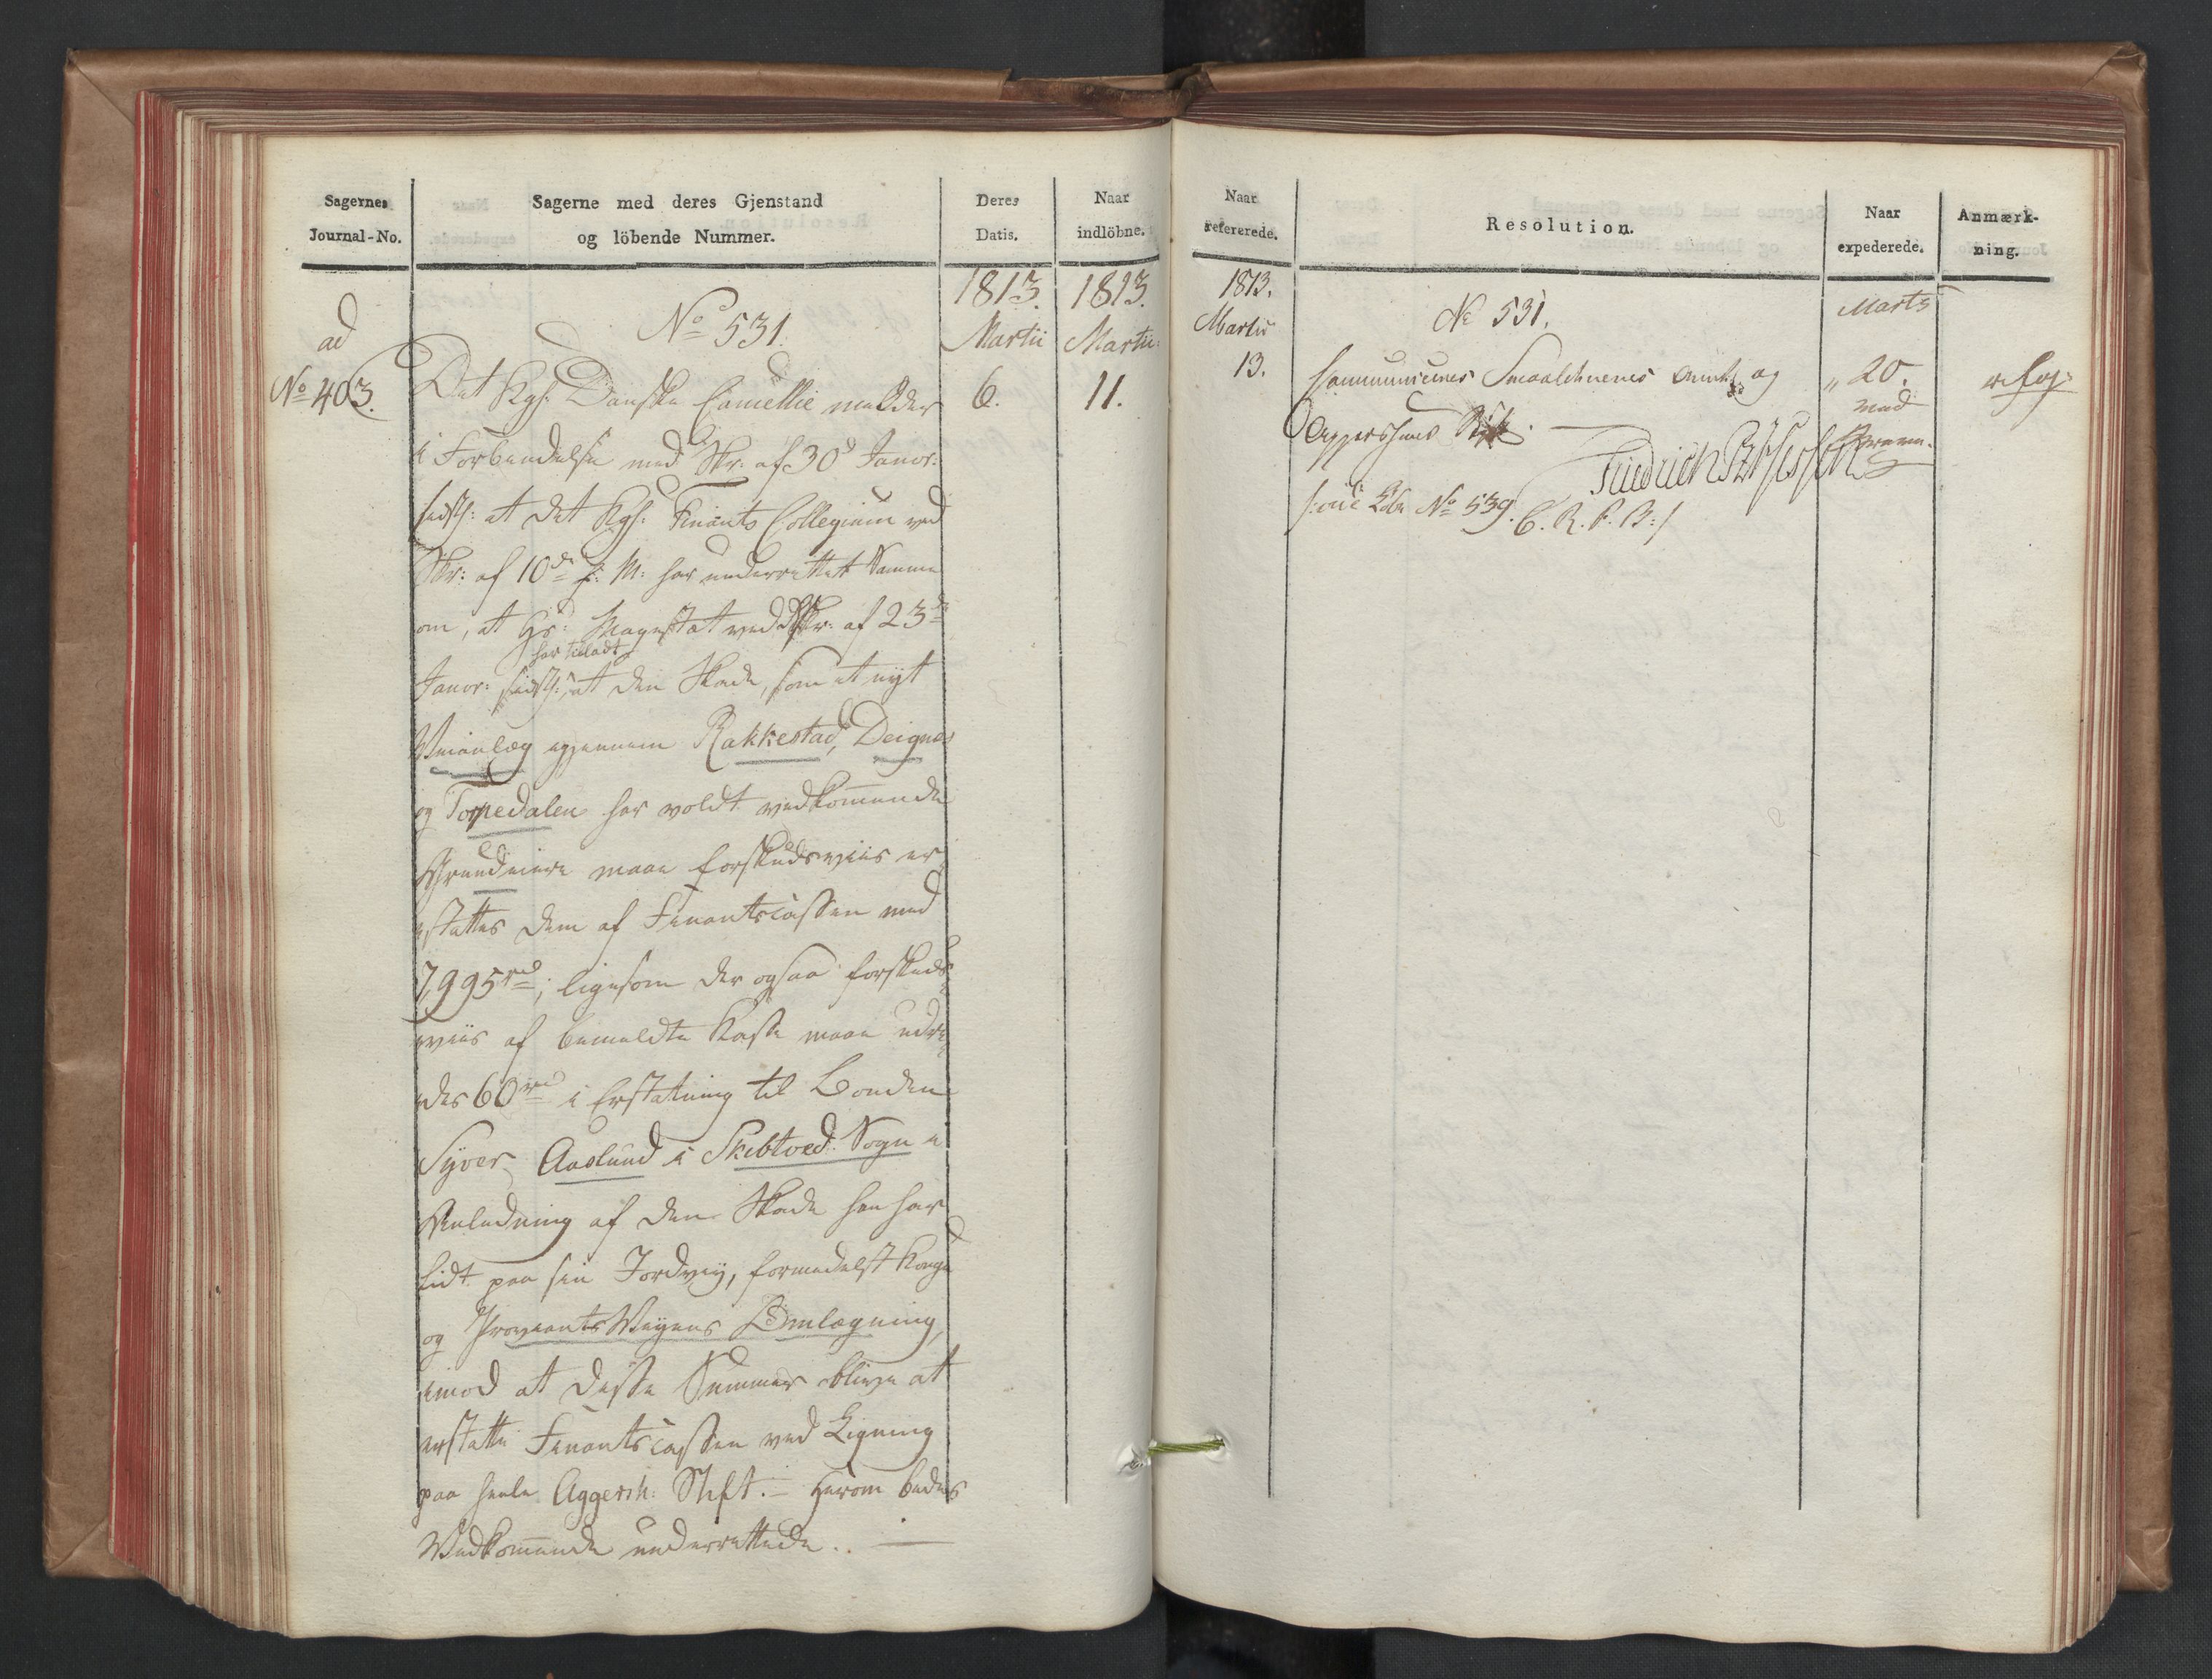 Sagernes
Journal-No.
Sagerne med deres Gjenstand
og löbende Nummer.
Deres
Datis.
Naar
indlöbne.
ad
No 403.
1813.
Martii
6.
1813.
Martii
11.
No 531.
Det Kgl. Danske Cancellie melder
i Forbindelse med Skr. af 30d Janvr:
sidstl: at det Kgl: Finants Collegium ved
Skr: af 10de f: M: har underrettet Samme
om, at Hs: Majestæt ved Skr: af 23de
har tilladt
Janvr: sidstl:, at den Skade, som et nyt
Veianlæg igjennem Rakkestad, Deignes
og Torpedalen har voldt vedkommende
Grundeiere maae forskudsviis er
stattes dem af Finantscassen med
7,995 rd; ligesom der ogsaa forskuds
viis af bemeldte Kasse maae udre
des 60 rd i Erstatning til Bonden
Syver Aaslund i Skibtved Sogn i
Anledning af den Skade han har
lidt paa sin Jordvey, formedelst Konge
og Proviants Veyens Omlægning,
imod at disse Summer blive at
erstatte Finantscassen ved Ligning
paa heele Aggersh: Stift. — Herom bedes
Vedkommende underrettede. —
Naar
refererede.
Resolution.
Naar
expederede.
Anmærk-
ning.
1813.
Martii
13.
No 531.
Communiceres Smaalehnenes Amt og
Aggershuus Stift. —
Friedrich
No 539. C. R. P. B:/
Marts
" 20.
med